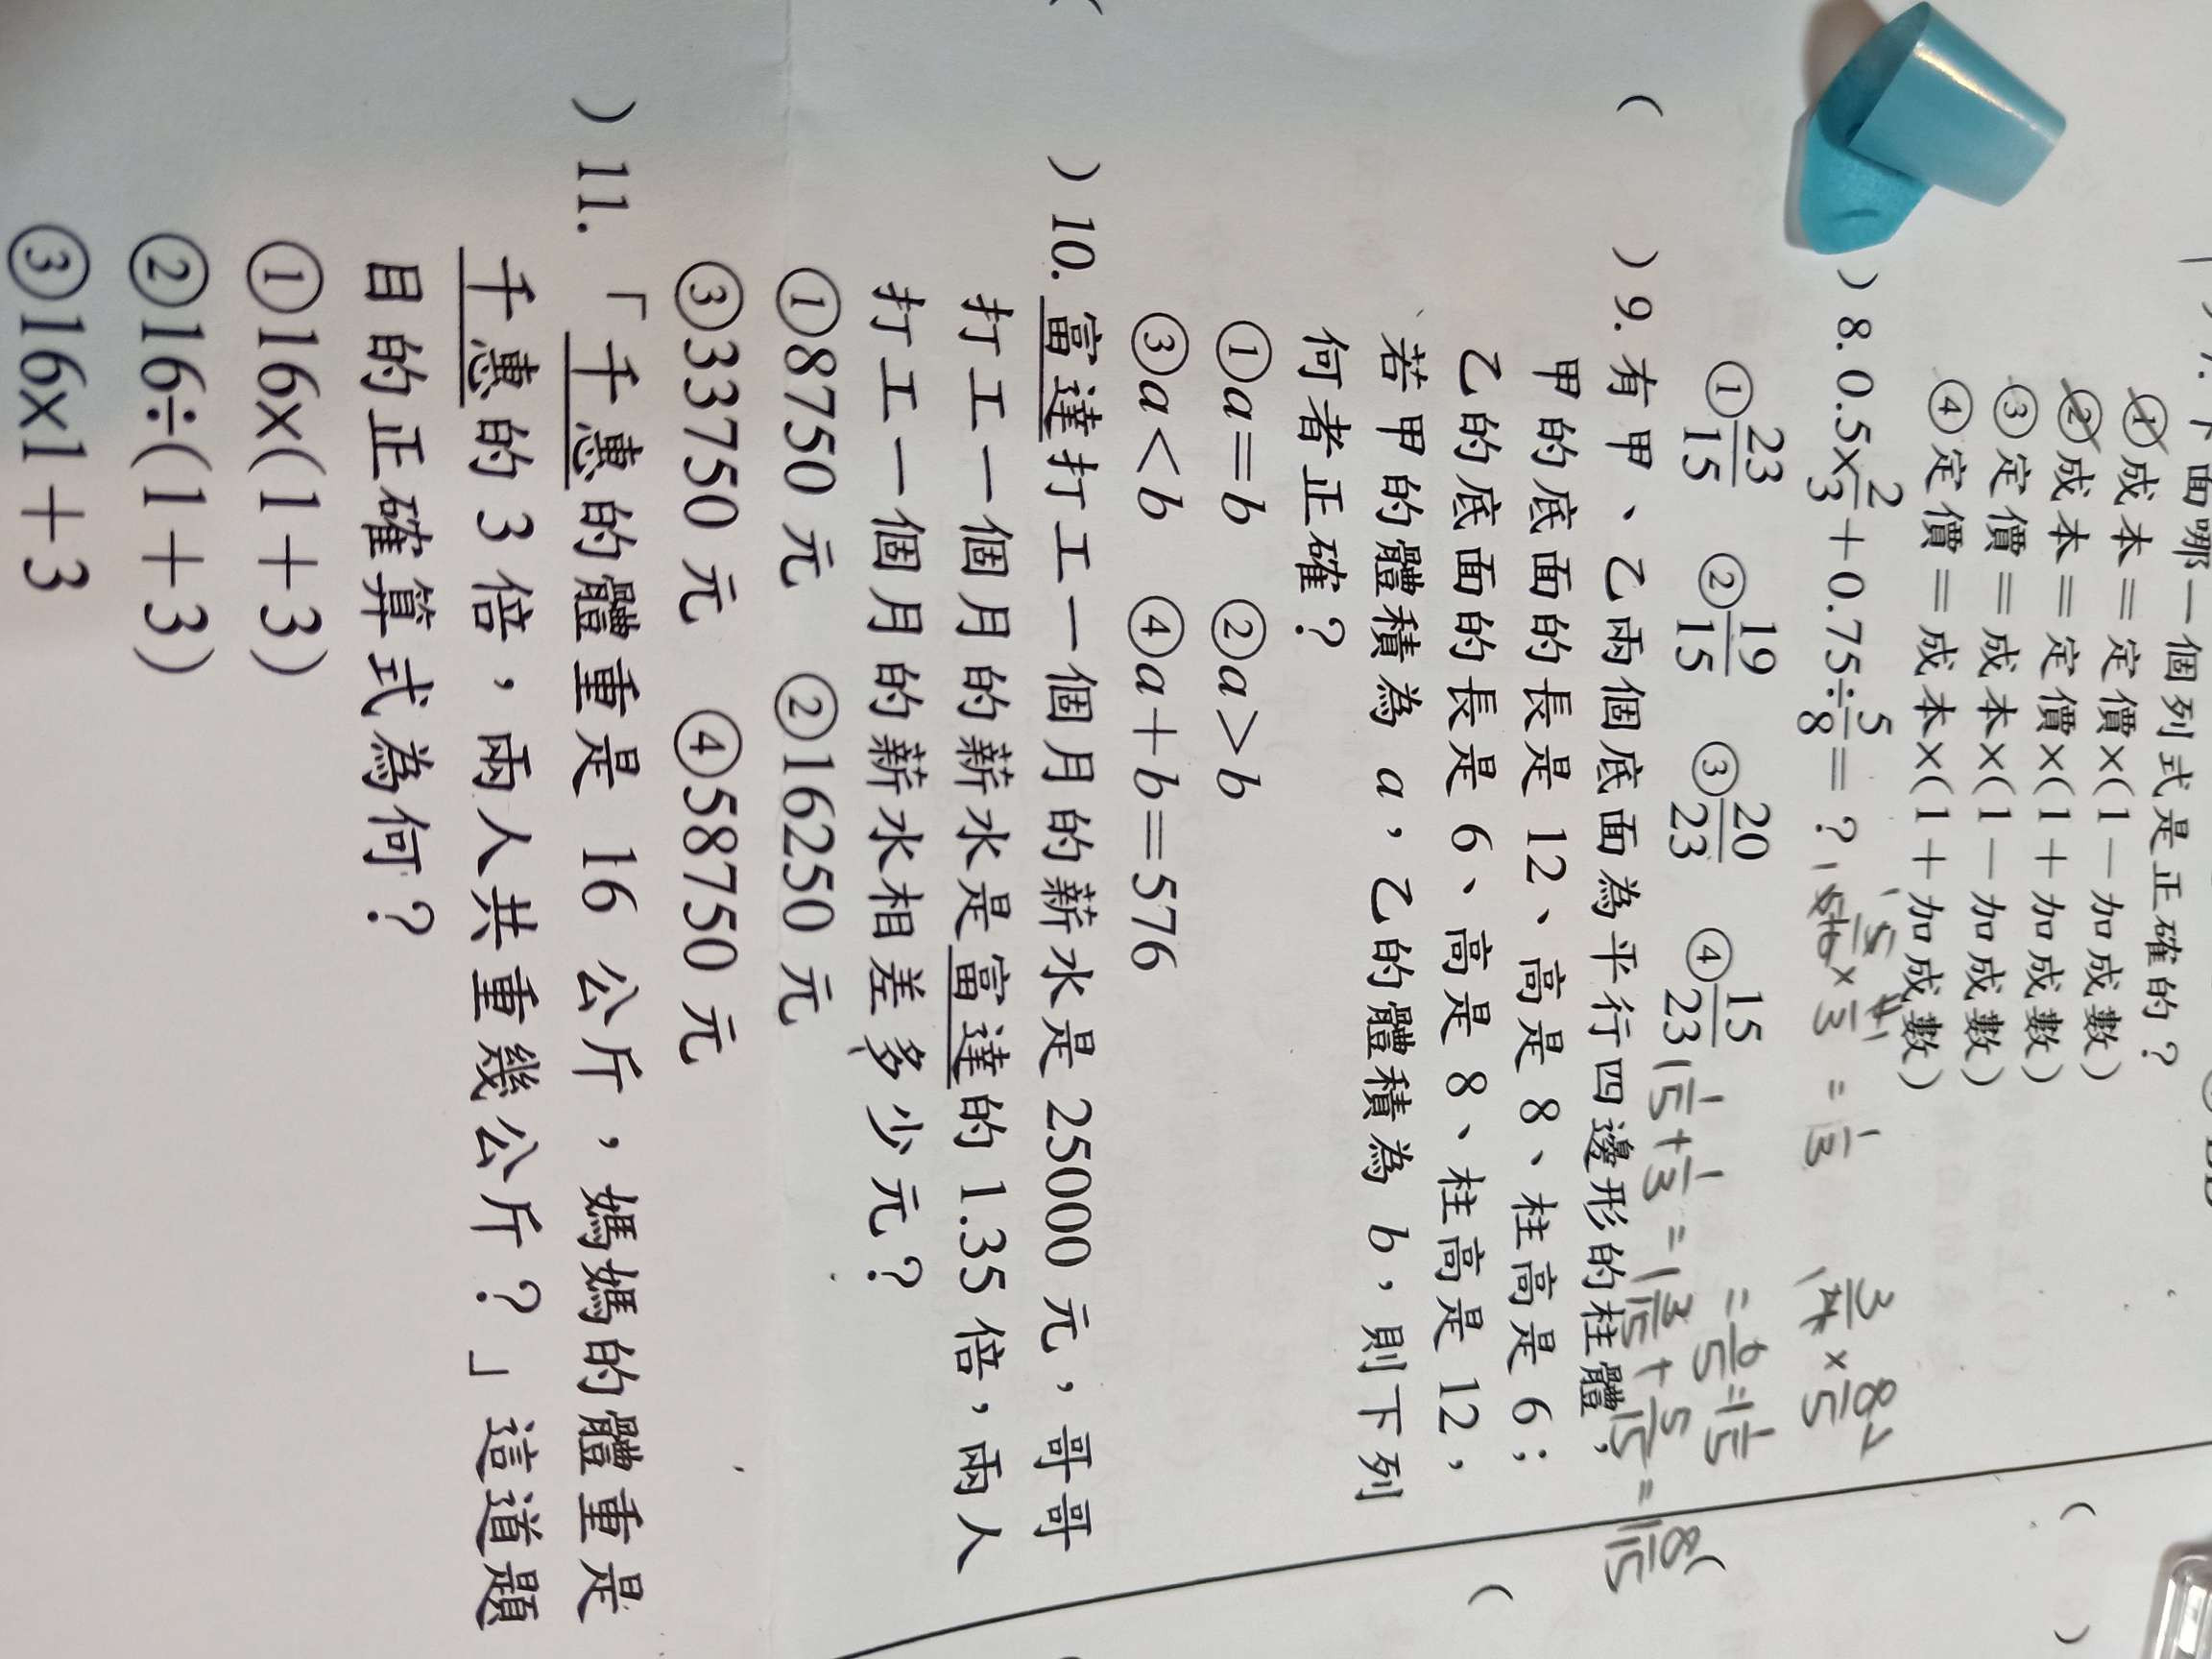 7. 下面哪一個列式是正確的？
①成本＝定價×(1－加成數)
②成本＝定價×(1＋加成數)
③定價＝成本×(1－加成數)
④定價＝成本×(1＋加成數)
)8. 0.5×2/3＋0.75÷5/8＝？
①23/15 ②19/15 ③20/23 ④15/23
= 1/3
3/4 × 8/5
= 6/5 = 1 1/5
1 1/5 + 1/3 = 1 3/15 + 5/15 = 1 8/15
( )9. 有甲、乙兩個底面為平行四邊形的柱體，
甲的底面的長是 12、高是 8、柱高是 6；
乙的底面的長是 6、高是 8、柱高是 12，
若甲的體積為 a，乙的體積為 b，則下列
何者正確？
①a＝b ②a＞b
③a＜b ④a＋b＝576
)10. 富達打工一個月的薪水是 25000 元，哥哥
打工一個月的薪水是富達的 1.35 倍，兩人
打工一個月的薪水相差多少元？
①8750 元 ②16250 元
③33750 元 ④58750 元
)11. 「千惠的體重是 16 公斤，媽媽的體重是
千惠的 3 倍，兩人共重幾公斤？」這道題
目的正確算式為何？
①16×(1＋3)
②16÷(1＋3)
③16×1＋3